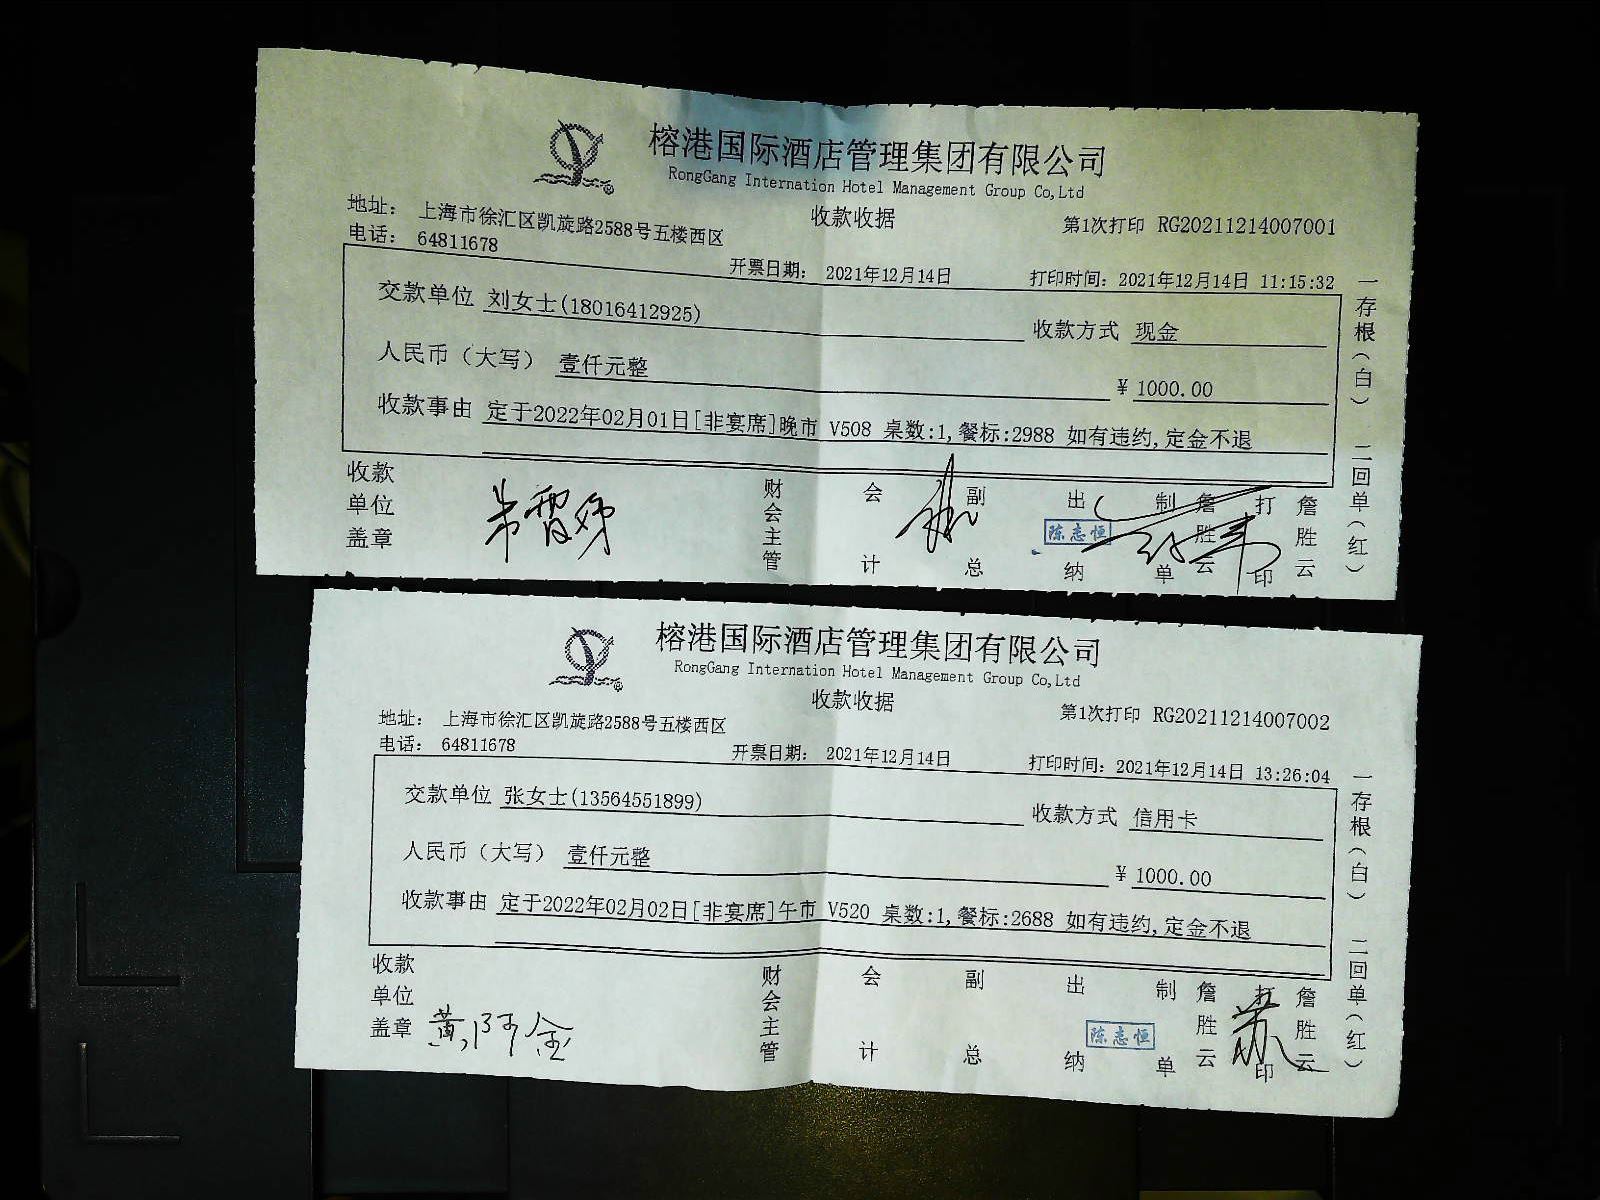 榕港国际酒店管理集团有限公司
RongGang Internation Hotel Management Group Co,Ltd
收款收据
地址： 上海市徐汇区凯旋路2588号五楼西区
第1次打印 RG20211214007001
电话： 64811678
开票日期： 2021年12月14日
打印时间：2021年12月14日 11:15:32
交款单位 刘女士(18016412925)
收款方式 现金
人民币（大写） 壹仟元整
¥ 1000.00
收款事由 定于2022年02月01日[非宴席]晚市 V508 桌数:1,餐标:2988 如有违约,定金不退
收款单位盖章
财会主管
会计
副总
出纳 陈志恒
制单 詹胜云
打印 詹胜云
一存根（白） 二回单（红）
榕港国际酒店管理集团有限公司
RongGang Internation Hotel Management Group Co,Ltd
收款收据
地址： 上海市徐汇区凯旋路2588号五楼西区
第1次打印 RG20211214007002
电话： 64811678
开票日期： 2021年12月14日
打印时间：2021年12月14日 13:26:04
交款单位 张女士(13564551899)
收款方式 信用卡
人民币（大写） 壹仟元整
¥ 1000.00
收款事由 定于2022年02月02日[非宴席]午市 V520 桌数:1,餐标:2688 如有违约,定金不退
收款单位盖章 黄阿金
财会主管
会计
副总
出纳 陈志恒
制单 詹胜云
打印 詹胜云
苏
一存根（白） 二回单（红）